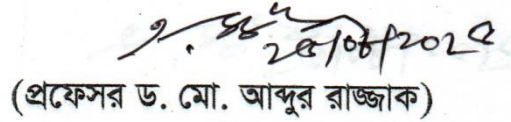 ২৫/০৪/২০২৫
(প্রফেসর ড. মো. আব্দুর রাজ্জাক)